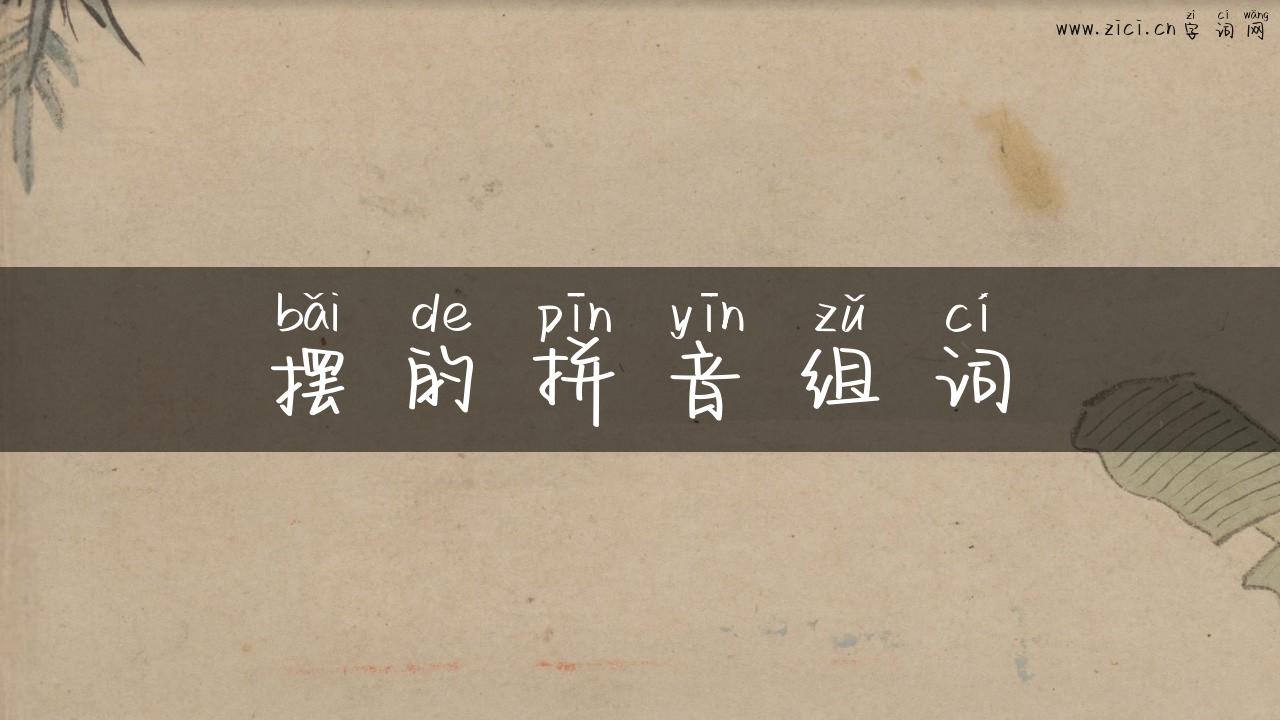 zì cí wǎng
www.zici.cn 字词网
bǎi de pīn yīn zǔ cí
摆的拼音组词